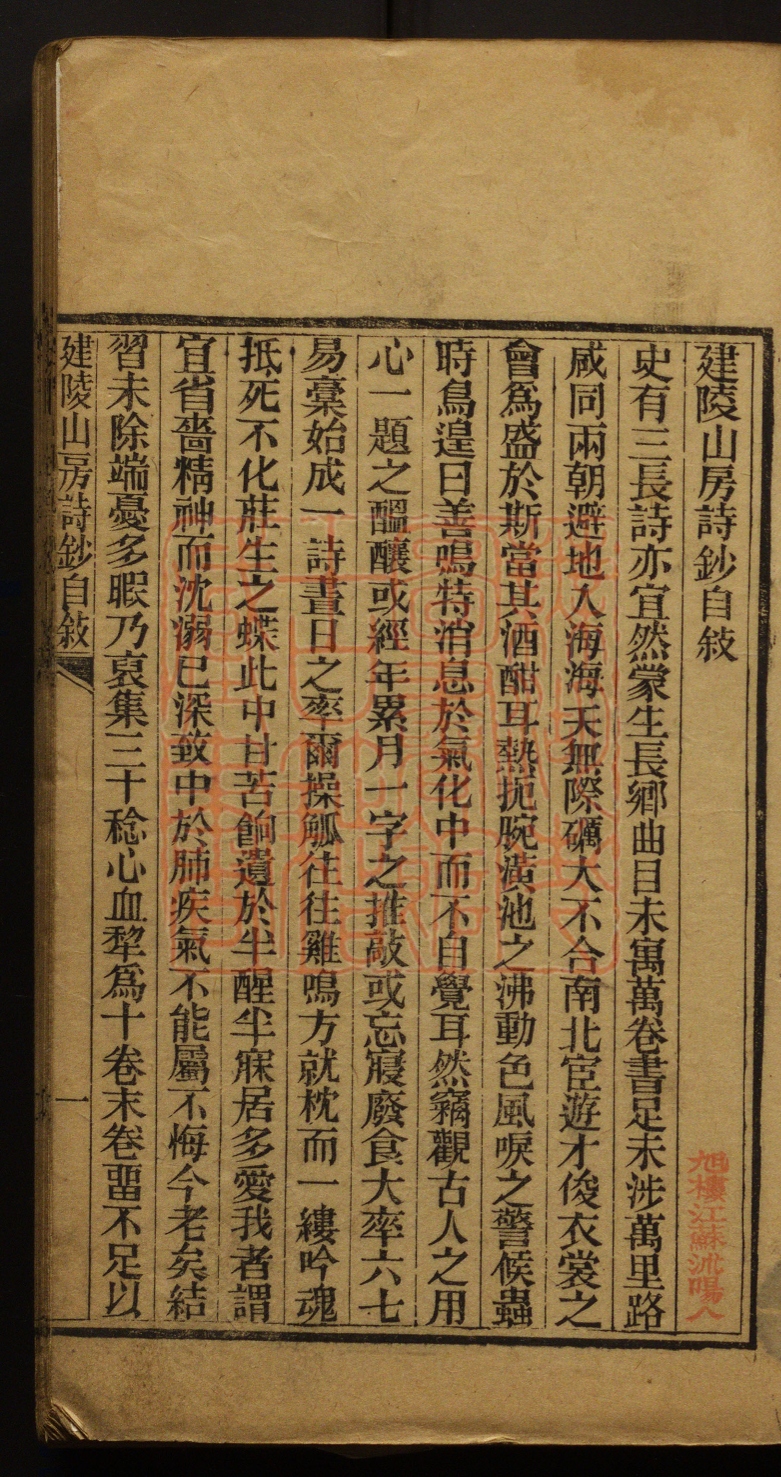 建陵山房詩鈔自敍
史有三長詩亦宜然蒙生長鄉曲目未寓萬卷書足未涉萬里路
咸同兩朝避地入海海天無際礪大不合南北宦遊才俊衣裳之
會爲盛於斯當其酒酣耳熱扼腕潢池之沸動色風唳之警候蟲
時鳥遑曰善鳴特消息於氣化中而不自覺耳然竊觀古人之用
心一題之醞釀或經年累月一字之推敲或忘寢廢食大率六七
易稾始成一詩晝日之率爾操觚往往雞鳴方就枕而一縷吟魂
抵死不化莊生之蝶此中甘苦餉遺於半醒半寐居多愛我者謂
宜省嗇精神而沈溺已深致中於肺疾氣不能屬不悔今老矣結
習未除端憂多暇乃裒集三十稔心血犂爲十卷末卷畱不足以
建陵山房詩鈔自敍
一
旭樓江蘇沭陽人